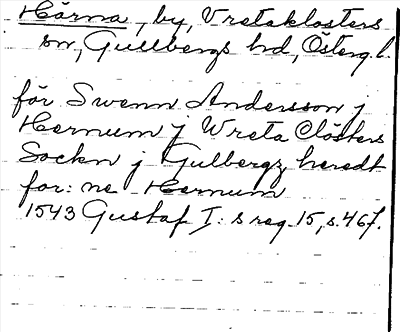 Härna, by, Vretaklosters
sn, Gullbergs hd, Österg.l.
för Swenn Andersson j
Hernum j Wreta Clösters
Sockn j Gulbergz heredt
for: ne Hernum
1543 Gustaf I: s reg. 15, s. 467.